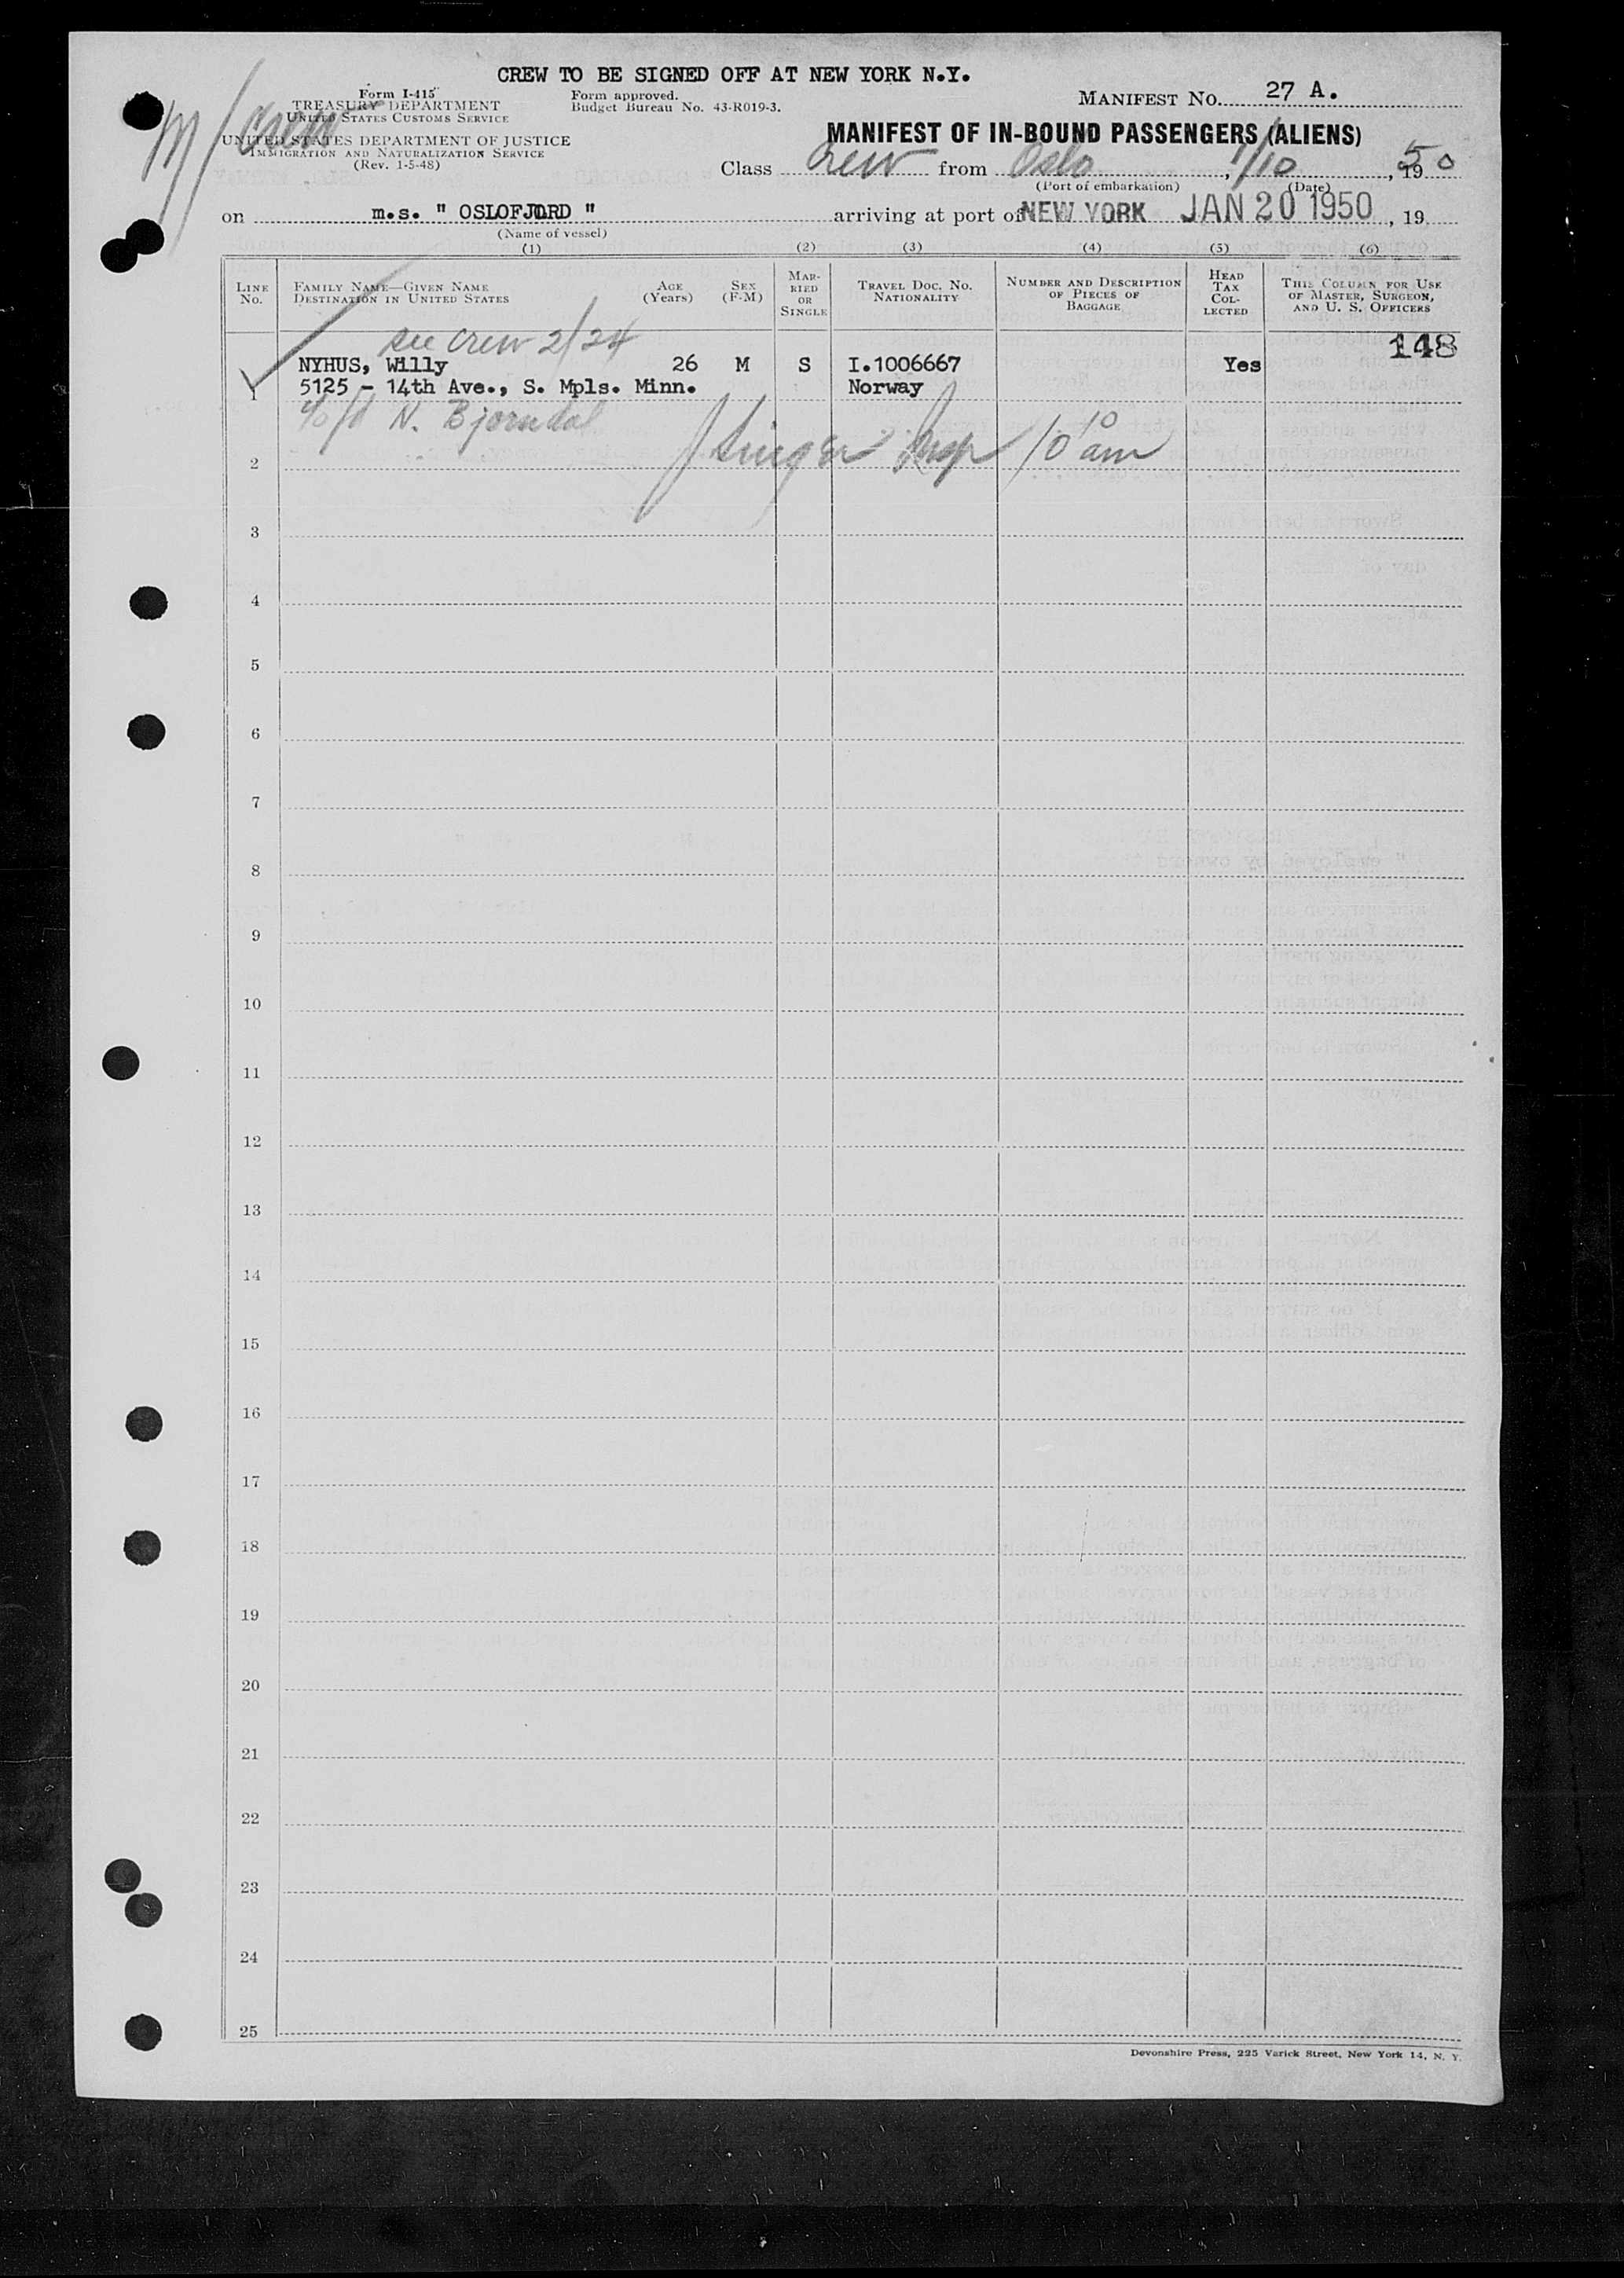 CREW TO BE SIGNED OFF AT NEW YORK N.Y.
Form I-415
TREASURY DEPARTMENT
UNITED STATES CUSTOMS SERVICE
UNITED STATES DEPARTMENT OF JUSTICE
IMMIGRATION AND NATURALIZATION SERVICE
(Rev. 1-5-48)
Form approved.
Budget Bureau No. 43-R019-3.
MANIFEST NO. 27 A.
M/Crew
MANIFEST OF IN-BOUND PASSENGERS (ALIENS)
Class Crew from Oslo, 1/10, 1950
(Port of embarkation) (Date)
on m.s. " OSLOFJORD " arriving at port of NEW YORK JAN 20 1950, 19
(Name of vessel)
(1) (2) (3) (4) (5) (6)
LINE NO.
FAMILY NAME—GIVEN NAME
DESTINATION IN UNITED STATES
AGE (Years)
SEX (F-M)
MARRIED OR SINGLE
TRAVEL DOC. NO. NATIONALITY
NUMBER AND DESCRIPTION OF PIECES OF BAGGAGE
HEAD TAX COLLECTED
THIS COLUMN FOR USE OF MASTER, SURGEON, AND U. S. OFFICERS
see crew 2/24
148
NYHUS, Willy 26 M S I.1006667 Yes
1 5125 - 14th Ave., S. Mpls. Minn. Norway
N. Bjorndal
Insp 10 10 am
2
3
4
5
6
7
8
9
10
11
12
13
14
15
16
17
18
19
20
21
22
23
24
25
Devonshire Press, 225 Varick Street, New York 14, N. Y.